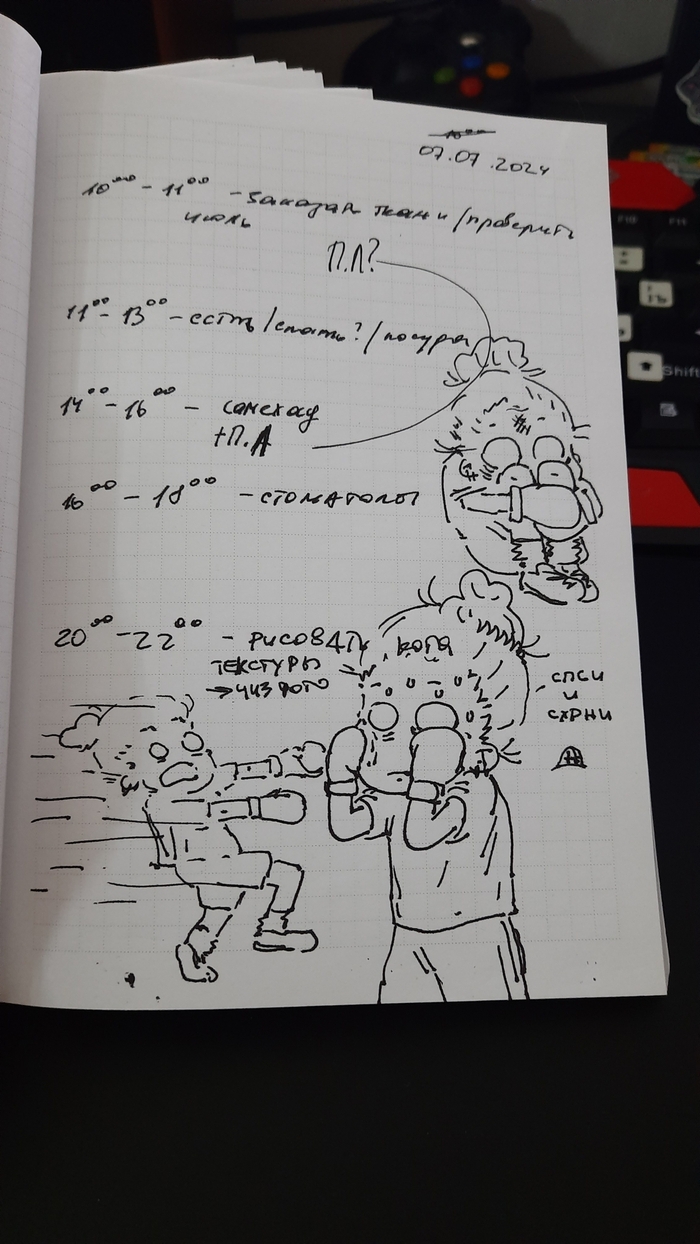 07.07.2024
10⁰⁰ - 11⁰⁰ - заказать ткани/проверить
П.Л?
11⁰⁰ - 13⁰⁰ - есть/спать?/посуда
14⁰⁰ - 16⁰⁰ - самокад
+П.Л
16⁰⁰ - 18⁰⁰ - стоматолог
20⁰⁰ - 22⁰⁰ - рисовать кота
ТЕКСТУРЫ
СПСИ
И
СХРНИ
F10
F11
Shift